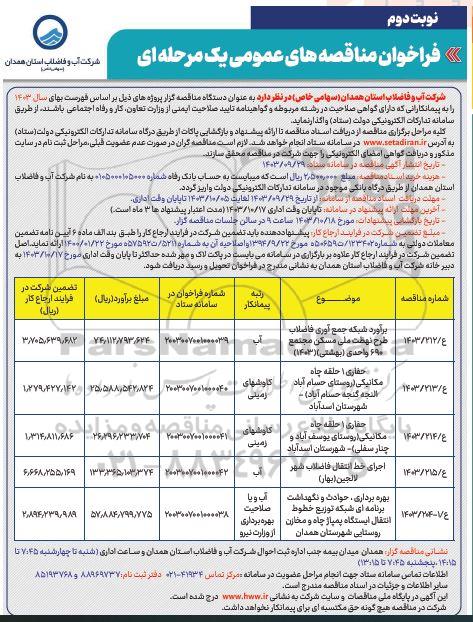 نوبت دوم
فراخوان مناقصه های عمومی یک مرحله ای
شرکت آب و فاضلاب استان همدان
(سهامی خاص)
شرکت آب و فاضلاب استان همدان (سهامی خاص) در نظر دارد به عنوان دستگاه مناقصه گزار پروژه های ذیل بر اساس فهرست بهای سال ۱۴۰۳
را به پیمانکارانی که دارای گواهی صلاحیت در رشته مربوطه و گواهینامه تایید صلاحیت ایمنی از وزارت تعاون، کار و رفاه اجتماعی باشند، از طریق
سامانه تدارکات الکترونیکی دولت (ستاد) واگذار نماید.
کلیه مراحل برگزاری مناقصه از دریافت اسناد مناقصه تا ارائه پیشنهاد و بازگشایی پاکات از طریق درگاه سامانه تدارکات الکترونیکی دولت (ستاد)
به آدرس www.setadiran.ir در سامانه ستاد انجام خواهد شد. لازم است مناقصه گران در صورت عدم عضویت قبلی، مراحل ثبت نام در سایت
مذکور و دریافت گواهی امضای الکترونیکی را جهت شرکت در مناقصه محقق سازند.
- تاریخ انتشار آگهی مناقصه در سامانه ستاد: ۱۴۰۳/۰۹/۲۹
- هزینه خرید اسناد مناقصه: مبلغ ۲,۵۰۰,۰۰۰ ریال است که میبایست به حساب بانک رفاه شماره ۰۱۰۵۱۰۰۰۱۵۰۰۰ به نام شرکت آب و فاضلاب
استان همدان از طریق درگاه بانکی موجود در سامانه تدارکات الکترونیکی دولت واریز گردد.
- مهلت دریافت اسناد مناقصه از سامانه: از تاریخ ۱۴۰۳/۰۹/۲۹ لغایت ۱۴۰۳/۱۰/۰۵ تا پایان وقت اداری.
- آخرین مهلت ارائه پیشنهاد در سامانه: تا پایان وقت اداری ۱۴۰۳/۱۰/۱۷ (مدت اعتبار پیشنهاد ها ۳ ماه است.)
- تاریخ بازگشایی پیشنهادات: مورخ ۱۴۰۳/۱۰/۱۸ ساعت ۹ در سالن جلسات مناقصه گزار.
- مبلغ و تضمین شرکت در فرایند ارجاع کار: پیشنهاددهنده باید تضمین شرکت در فرایند ارجاع کار را طبق بند الف ماده ۶ آیین نامه تضمین
معاملات دولتی به شماره ۱۲۳۴۰۲/ت۵۰۶۵۹ه مورخ ۱۳۹۴/۹/۲۲ واصلاحیه آن به شماره ۵۲۱۱/ت۵۷۵۹۲ه مورخ ۱۴۰۰/۰۱/۲۲ ارائه نماید. اصل
تضمین شرکت در فرایند ارجاع کار علاوه بر بارگزاری در سامانه می بایست در پاکت لاک و مهر شده حداکثر تا پایان وقت اداری مورخ ۱۴۰۳/۱۰/۱۷ به
دبیر خانه شرکت آب و فاضلاب استان همدان به نشانی مندرج در فراخوان تحویل و رسید دریافت شود.
شماره مناقصه موضوع رتبه پیمانکار شماره فراخوان در سامانه ستاد مبلغ برآورد (ریال) تضمین شرکت در فرایند ارجاع کار (ریال)
ع/۱۴۰۳/۲۱۲ برآورد شبکه جمع آوری فاضلاب طرح نهضت ملی مسکن مجتمع ۶۹۰ واحدی (بهشتی) (۱۴۰۳) آب ۲۰۰۳۰۰۷۰۰۱۰۰۰۰۳۹ ۷۴,۱۱۲,۷۹۳,۶۲۴ ۳,۷۰۵,۶۳۹,۶۸۲
ع/۱۴۰۳/۲۱۳ حفاری ۱ حلقه چاه مکانیکی (روستای حسام آباد النجه گنجه حسام آباد) - شهرستان اسدآباد کاوشهای زمینی ۲۰۰۳۰۰۷۰۰۱۰۰۰۰۴۰ ۲۵,۵۸۸,۵۴۲,۸۲۴ ۱,۲۷۹,۴۲۷,۱۴۲
ع/۱۴۰۳/۲۱۴ حفاری ۱ حلقه چاه مکانیکی (روستای یوسف آباد و چنار سفلی) - شهرستان اسدآباد کاوشهای زمینی ۲۰۰۳۰۰۷۰۰۱۰۰۰۰۴۱ ۲۶,۲۹۶,۲۳۳,۷۰۴ ۱,۳۱۴,۸۱۱,۶۸۶
ع/۱۴۰۳/۲۱۵ اجرای خط انتقال فاضلاب شهر لالجین (بهار) آب ۲۰۰۳۰۰۷۰۰۱۰۰۰۰۴۲ ۱۳۳,۳۶۵,۱۰۳,۳۷۴ ۶,۶۶۸,۲۵۵,۱۶۹
ع/۱۴۰۳/۲۰۴-۷ بهره برداری، حوادث و نگهداشت برنامه ای شبکه توزیع خطوط انتقال ایستگاه پمپاژ چاه و مخازن روستایی شهرستان همدان آب و یا صلاحیت بهره برداری از وزارت نیرو ۲۰۰۳۰۰۷۰۰۱۰۰۰۰۳۸ ۵۷,۸۸۴,۷۹۹,۷۷۵ ۲,۸۹۴,۲۳۹,۹۸۹
نشانی مناقصه گزار: همدان میدان بیمه جنب اداره ثبت احوال شرکت آب و فاضلاب استان همدان و ساعت اداری (شنبه تا چهارشنبه ۷:۴۵ تا
۱۴:۱۵، پنجشنبه ۷:۴۵ تا ۱۳:۱۵)
اطلاعات تماس سامانه ستاد جهت انجام مراحل عضویت در سامانه: مرکز تماس ۴۱۹۳۴-۰۲۱ دفتر ثبت نام: ۸۸۹۶۹۷۳۷ و ۸۵۱۹۳۷۶۸
سایر اطلاعات و جزئیات در اسناد مناقصه مندرج است.
این آگهی در پایگاه ملی مناقصات و سایت شرکت به نشانی www.hww.ir درج شده است.
شرکت در مناقصه هیچ گونه حق مکتسبه ای برای پیمانکار نخواهد داشت.